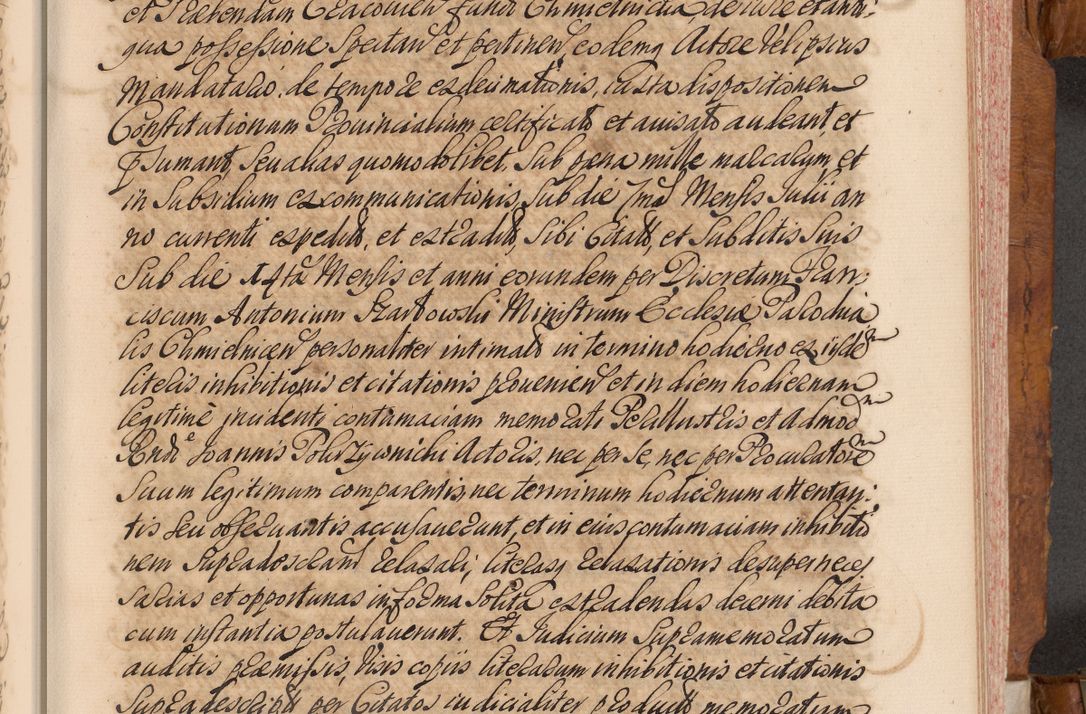 et Præbendam Cracovien fundi Chmielnicka, de iure et anti-
qua possessione spectan et pertinen eodemq Actore vel ipsius
Mandatario, de tempore exdecimationis, iuxta dispositionem
Constitutionum Provincialium certificato et avisato audeant, et
præsumant, seu alias quomodolibet, sub pœna mille marcarum, et
in subsidium excommunicationis, sub die Ima Mensis Julii an
no currenti expedito, et extradito, sibi Citato, et subditis suis
sub die 14ta Mensis et anni eorundem per Discretum Fran-
ciscum Antonium Skarbowski Ministrum Ecclesiæ Parochia
lis Chmielnicen personaliter intimato in termino hodierno ex iisdem
literis inhibitionis et citationis provenien et in diem hodiernam
legitime incidenti contumaciam memorati Perillustris et Admodm
Rndi Joannis Pokrzywnicki Actoris, nec per se, nec per Procuratorem
suum legitimum comparentis, nec terminum hodiernum attentan-
tis seu observantis accusaverunt, et in eius contumaciam inhibitio
nem supradoscrand relaxari, literasq relaxationis desuper neces
sarias et opportunas in forma solita extradendas decerni debita
cum instantia postulaverunt. Et Judicium supramemoratum
auditis præmissis, visis copiis literarum inhibitionis et citationis
supradescripto per Citatos iudicialiter producto memoratum